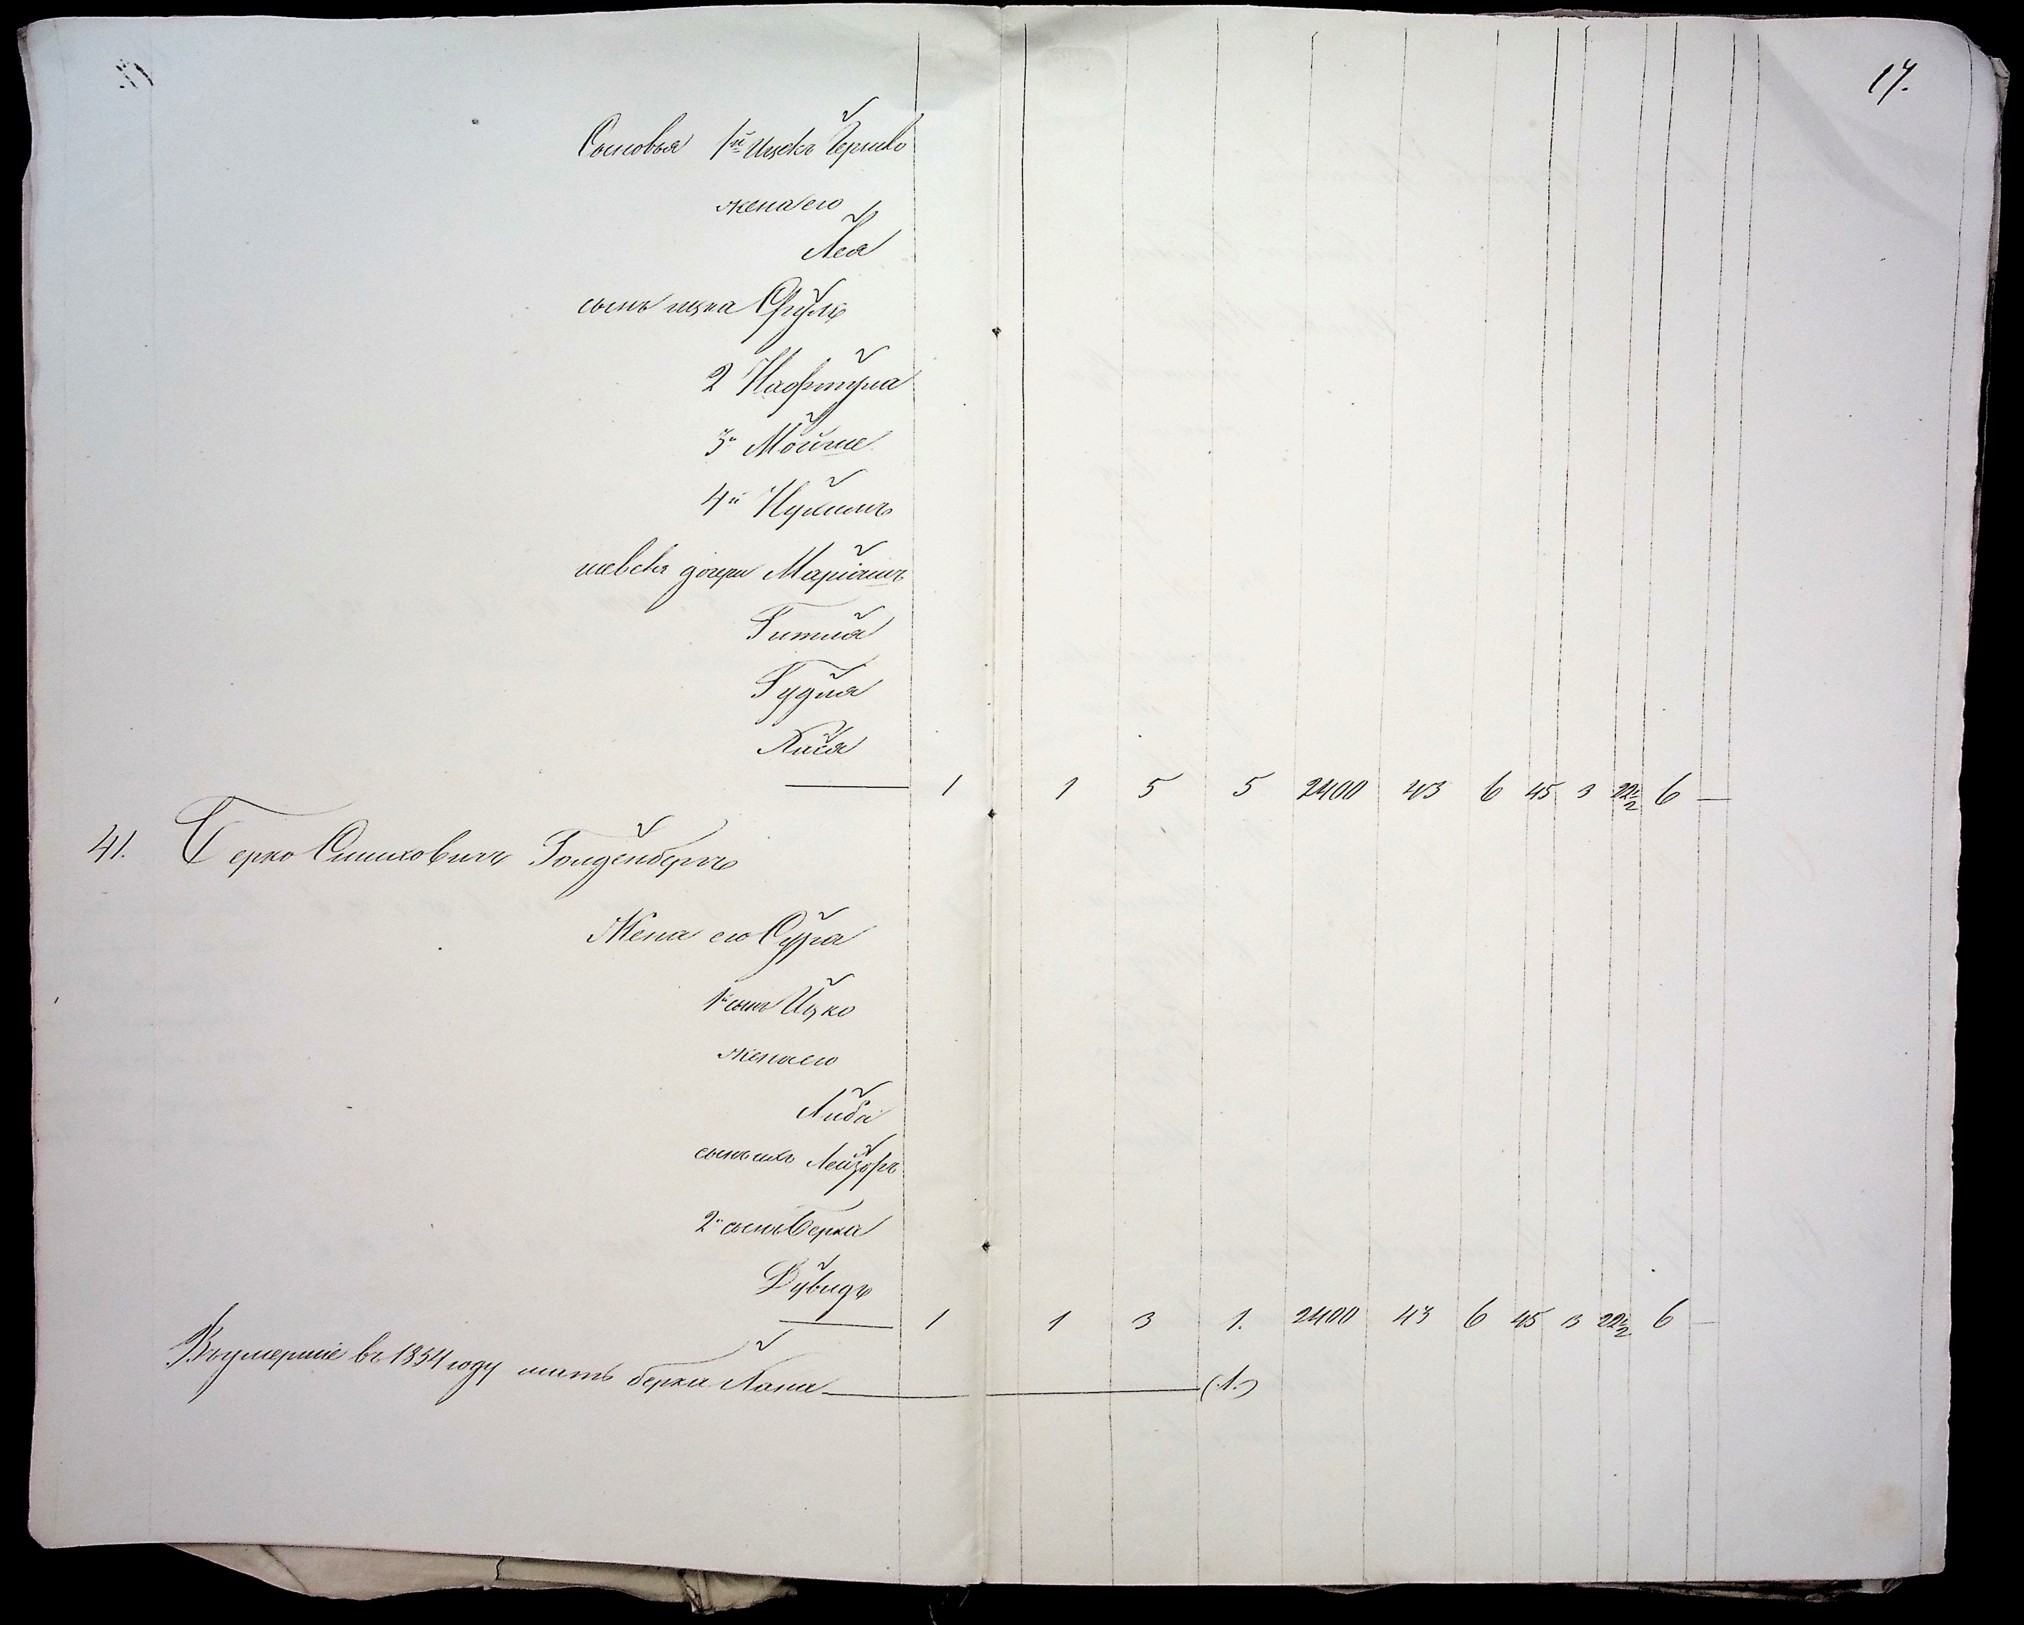 17.
Сыновья 1й Ицекъ Берко
жена его
Лея
сынъ ицка Сруль
2 Нафтула
3й Мойше
4й Нухимъ
дочери Маріямъ
Гитля
Гудля
Хася
1 1 5 5 2400 43 6 45 3 22½ 6 —
41. Берко Симховичъ Голденбергъ
Жена его Сура
1й сынъ Ицко
жена его
Либа
сынъ ихъ Лейзоръ
2й сынъ Берка
Дувидъ
1 1 3 1. 2400 43 6 45 3 22½ 6 —
въ 1854 году мать берка Хана (1.)